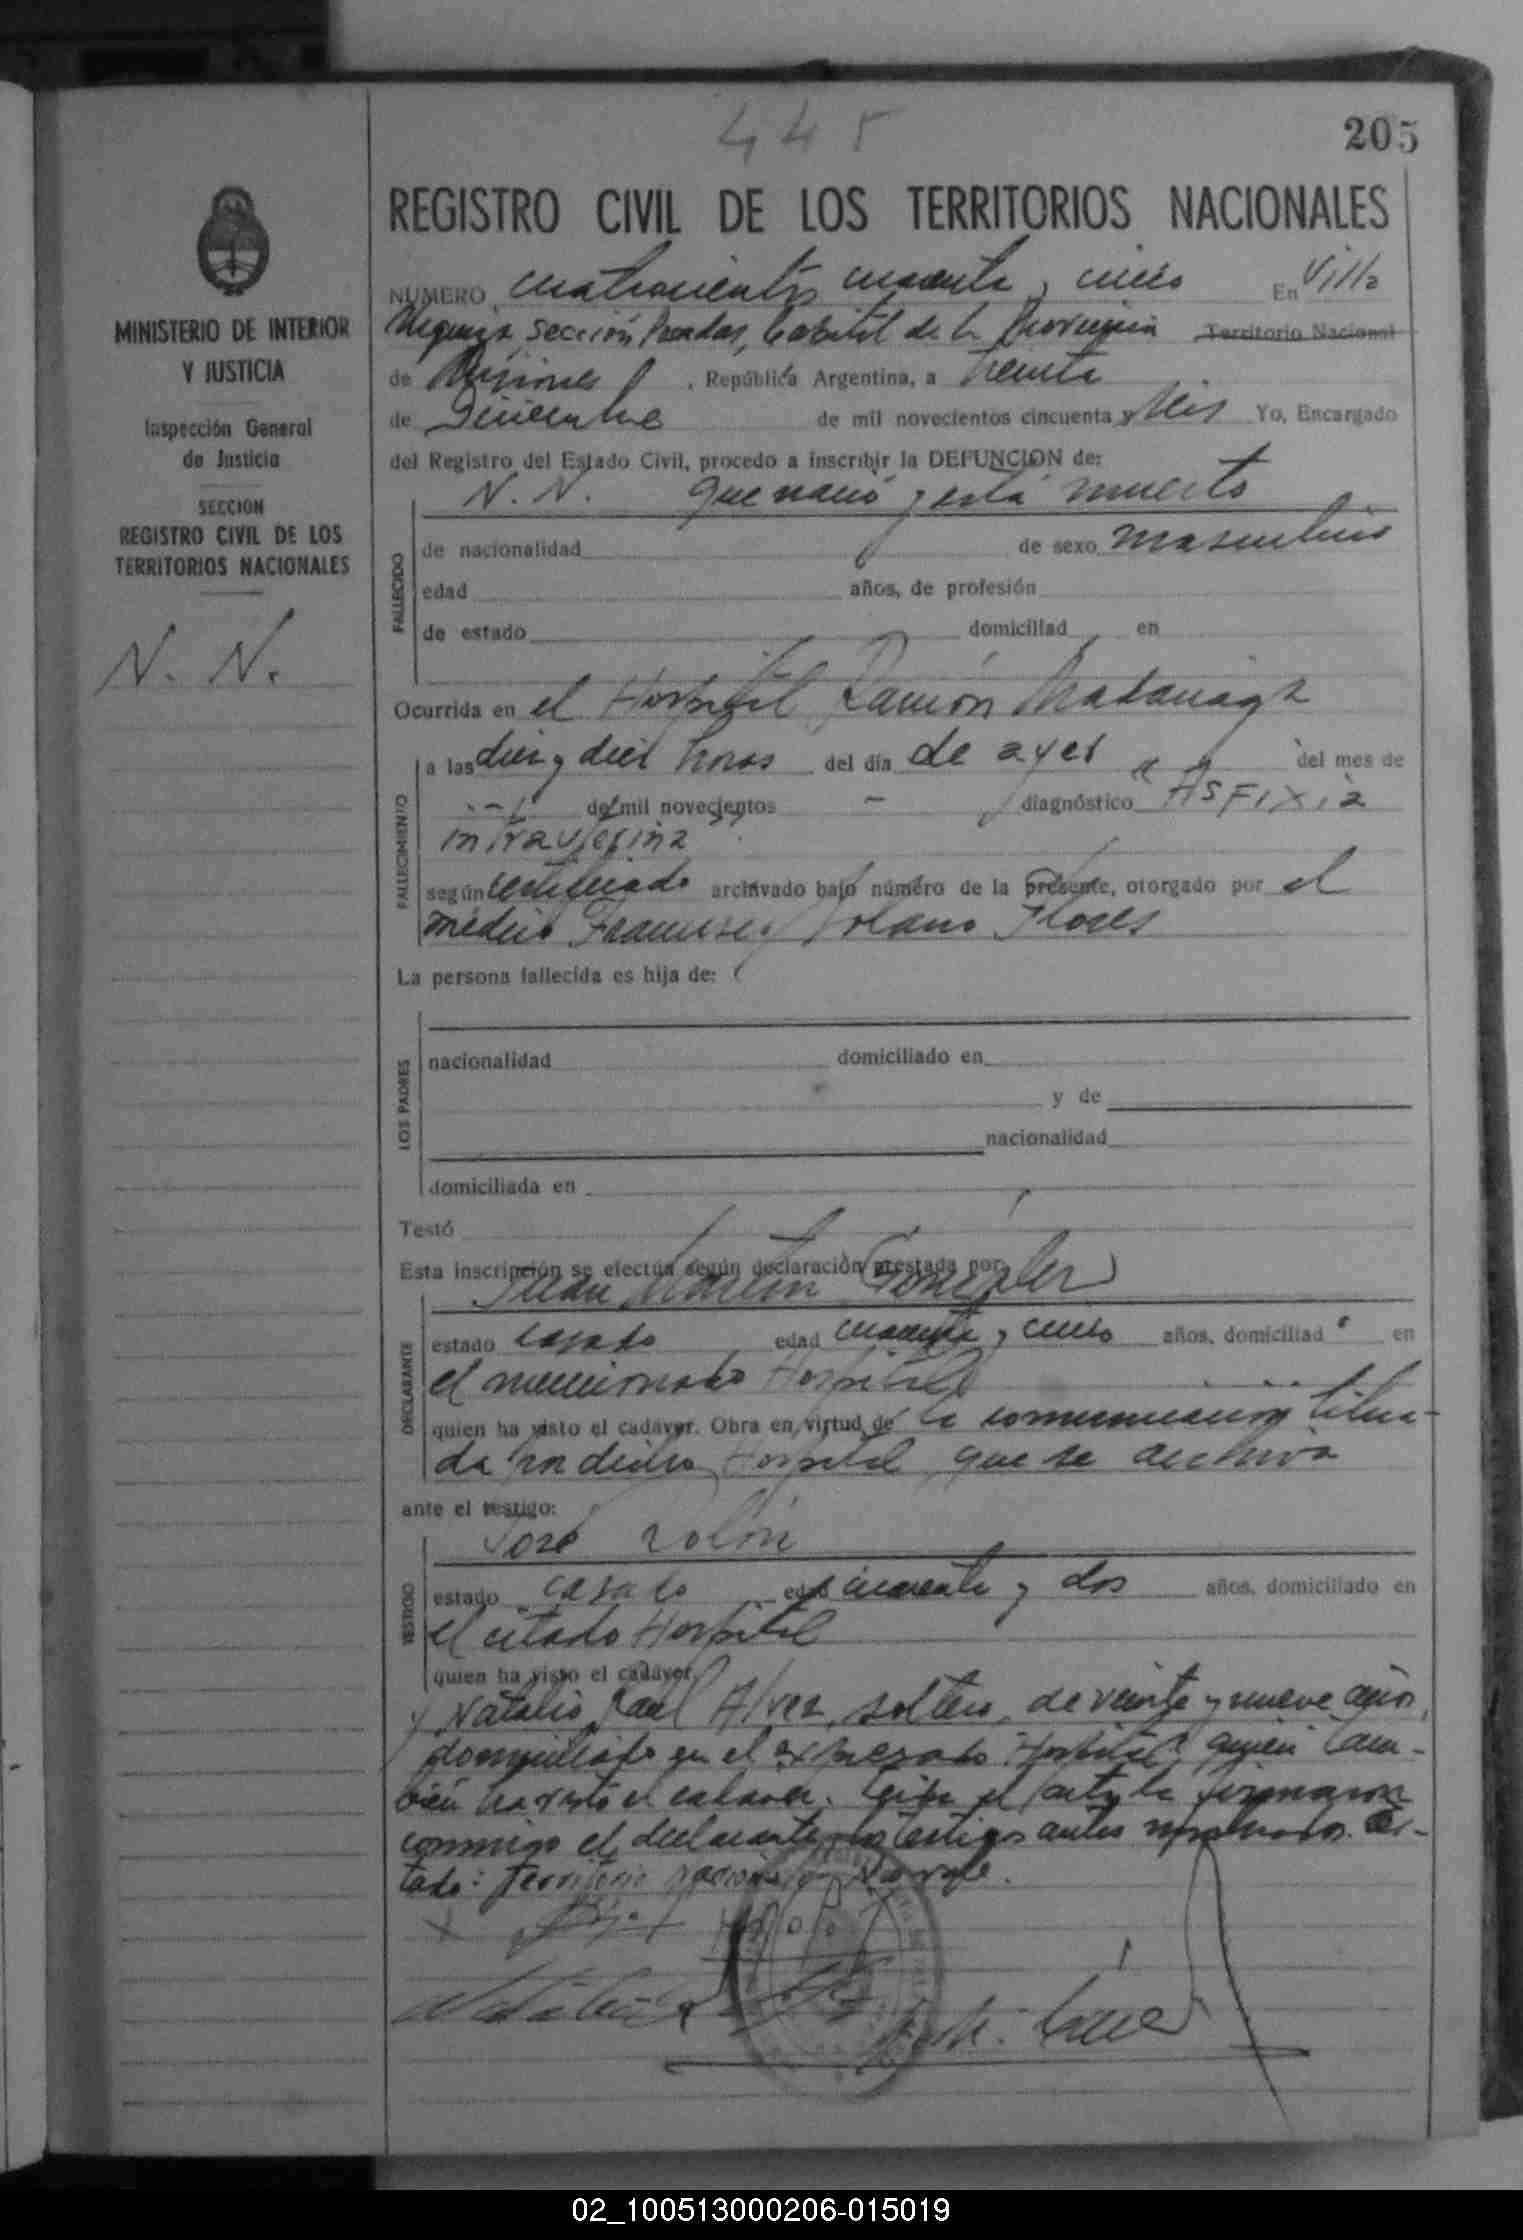 445
205
REGISTRO CIVIL DE LOS TERRITORIOS NACIONALES
MINISTERIO DE INTERIOR
Y JUSTICIA
Inspección General
de Justicia
SECCION
REGISTRO CIVIL DE LOS
TERRITORIOS NACIONALES
N. N.
NUMERO cuatrocientos cuarenta y cinco En Villa
Urquiza, sección Posadas, Capital de la Provincia Territorio Nacional
de Misiones, República Argentina, a treinta
de Diciembre de mil novecientos cincuenta y seis Yo, Encargado
del Registro del Estado Civil, procedo a inscribir la DEFUNCION de:
N. N. que nació y está muerto
FALLECIDO
de nacionalidad de sexo masculino
edad años, de profesión
de estado domiciliad en
Ocurrida en el Hospital Ramón Madariaga
FALLECIMIENTO
a las diez y diez horas del día de ayer del mes de
de mil novecientos - diagnóstico "Asfixia
intrauterina"
según certificado archivado bajo número de la presente, otorgado por el
médico Francisco Solano Flores
La persona fallecida es hija de:
LOS PADRES
nacionalidad domiciliado en
y de
nacionalidad
domiciliada en
Testó
Esta inscripción se efectúa según declaración prestada por:
Juan Martín González
DECLARANTE
estado casado edad cuarenta y cinco años, domiciliad o en
el mencionado Hospital
quien ha visto el cadáver. Obra en virtud de la comunicación libra-
da por dicho Hospital que se archiva
ante el testigo:
José Rolón
TESTIGO
estado casado edad cuarenta y dos años, domiciliado en
el citado Hospital
quien ha visto el cadáver.
y Natalio Raul Alvez, soltero, de veinte y nueve años,
domiciliado en el expresado Hospital quien tam-
bién ha visto el cadáver. Leída el acta la firmaron
conmigo el declarante y los testigos antes nombrados. Tes-
tado: Territorio nacional no vale.
02_100513000206-015019